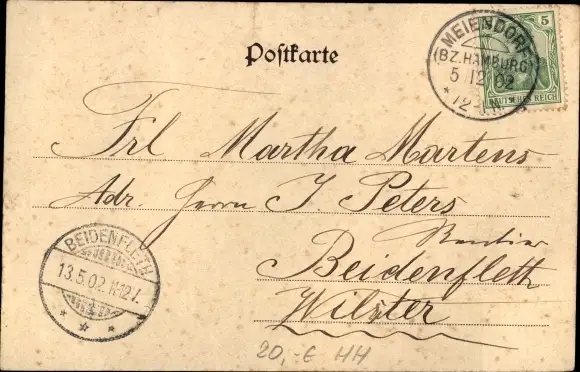 Postkarte
MEIENDORF
(BZ. HAMBURG)
5
DEUTSCHES REICH
Frl Martha Martens
Adr. Herrn J Peters
Rentier
Beidenfleth
Wilster
BEIDENFLETH
13.5.02.
20,-€ HH